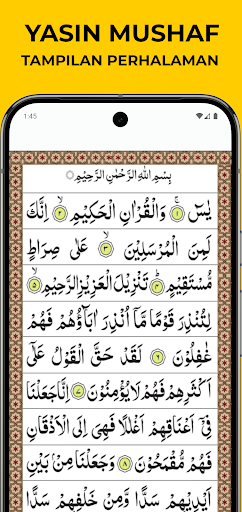 YASIN MUSHAF
TAMPILAN PERHALAMAN
1:45
بِسْمِ اللّٰهِ الرَّحْمٰنِ الرَّحِيْمِ
يٰسٓ ۚ ﴿١﴾ وَالْقُرْاٰنِ الْحَكِيْمِ ۙ ﴿٢﴾ اِنَّكَ
لَمِنَ الْمُرْسَلِيْنَ ۙ ﴿٣﴾ عَلٰى صِرَاطٍ
مُّسْتَقِيْمٍ ۗ ﴿٤﴾ تَنْزِيْلَ الْعَزِيْزِ الرَّحِيْمِ ۙ ﴿٥﴾
لِتُنْذِرَ قَوْمًا مَّآ اُنْذِرَ اٰبَاۤؤُهُمْ فَهُمْ
غٰفِلُوْنَ ﴿٦﴾ لَقَدْ حَقَّ الْقَوْلُ عَلٰٓى
اَكْثَرِهِمْ فَهُمْ لَا يُؤْمِنُوْنَ ﴿٧﴾ اِنَّا جَعَلْنَا
فِيْٓ اَعْنَاقِهِمْ اَغْلٰلًا فَهِيَ اِلَى الْاَذْقَانِ
فَهُمْ مُّقْمَحُوْنَ ﴿٨﴾ وَجَعَلْنَا مِنْۢ بَيْنِ
اَيْدِيْهِمْ سَدًّا وَّمِنْ خَلْفِهِمْ سَدًّا